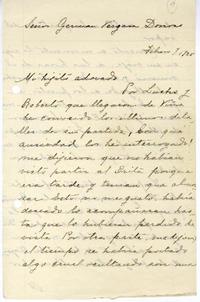 Señor German Vergara Donoso
Mi hijito adorado
Por Lucho y
Roberto que llegaron de Viña
he conocido los últimos deta
lles de su partida, con que
ansiedad los he interrogado
me dijeron que no habían
visto partir al Orita porque
era tarde y tenían que almor
zar. Esto no me gustó, habría
deseado lo acompañaran has
ta que lo hubieran perdido de
vista. Por otra parte, me dijeron
el tiempo se había portado
algo cruel resultando con una